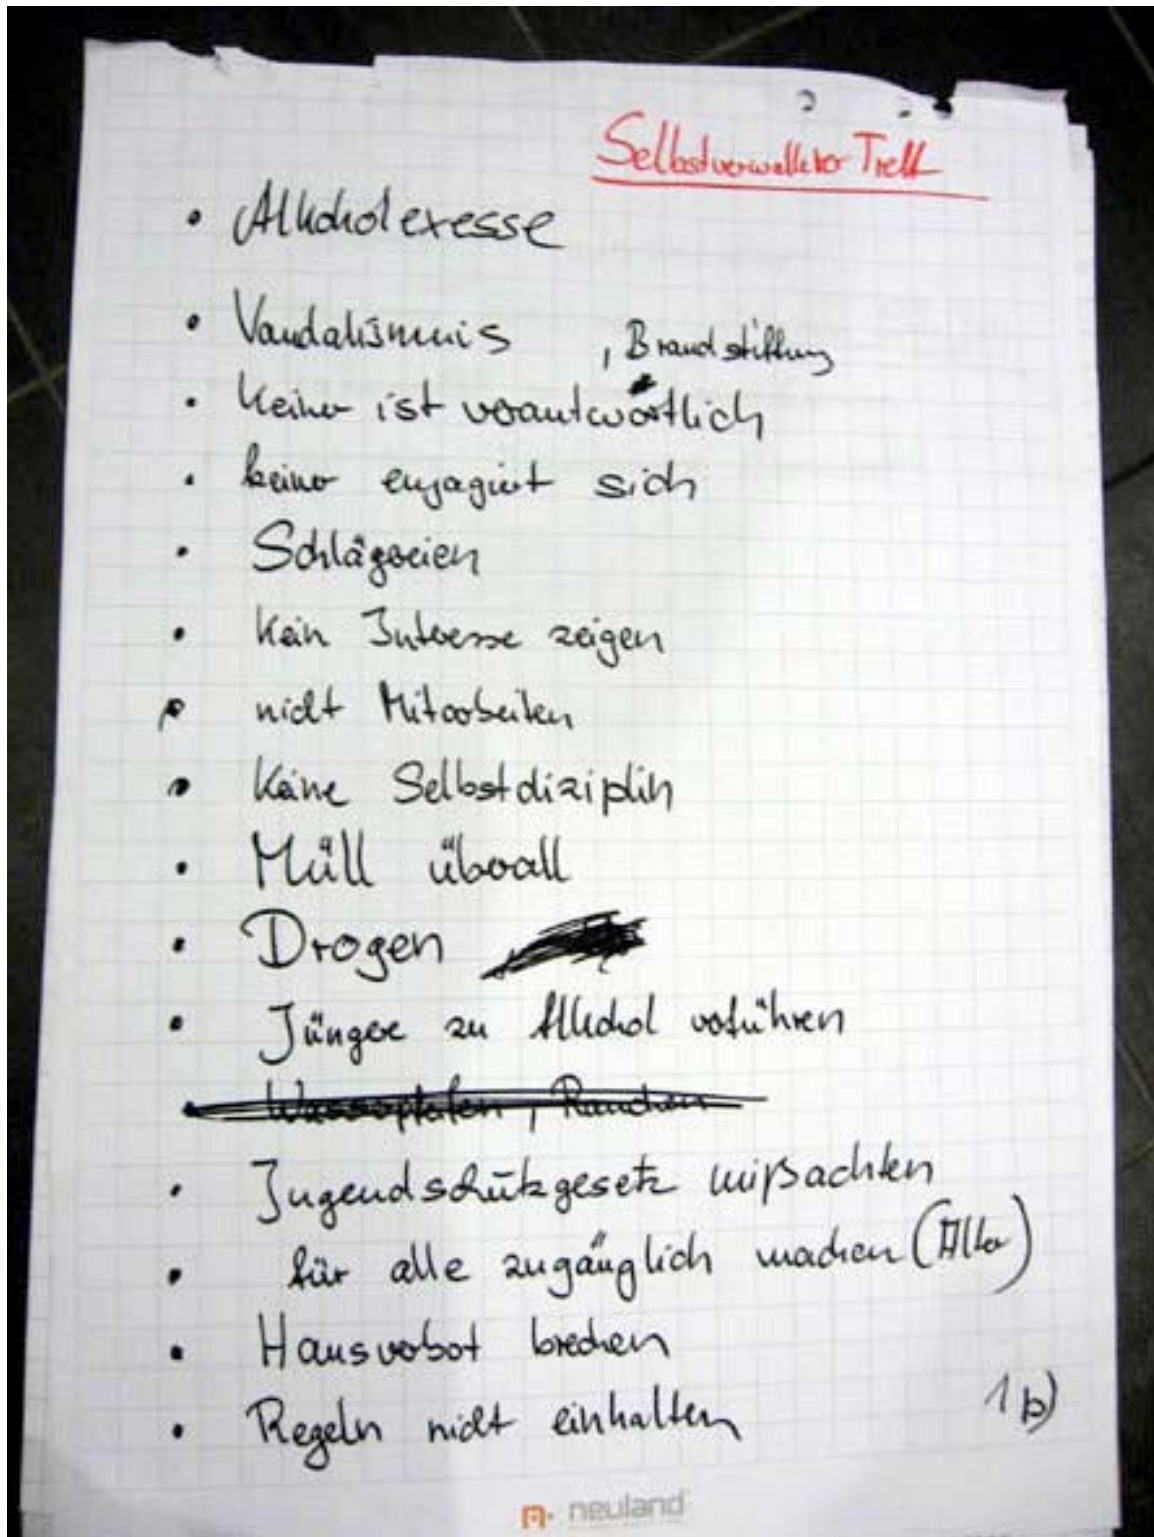 Selbstverwalteter Treff
• Alkoholexesse
• Vandalismuis , Brandstiftung
• Keiner ist verantwortlich
• keiner engagiert sich
• Schlägereien
• Kein Interesse zeigen
• nicht Mitarbeiten
• Keine Selbstdiziplin
• Müll überall
• Drogen
• Jünger zu Alkohol verführen
• Wasserpfeifen, Rauchen
• Jugendschutzgesetz mißachten
• für alle zugänglich machen (Alter)
• Hausverbot brechen
• Regeln nicht einhalten
1b)
neuland